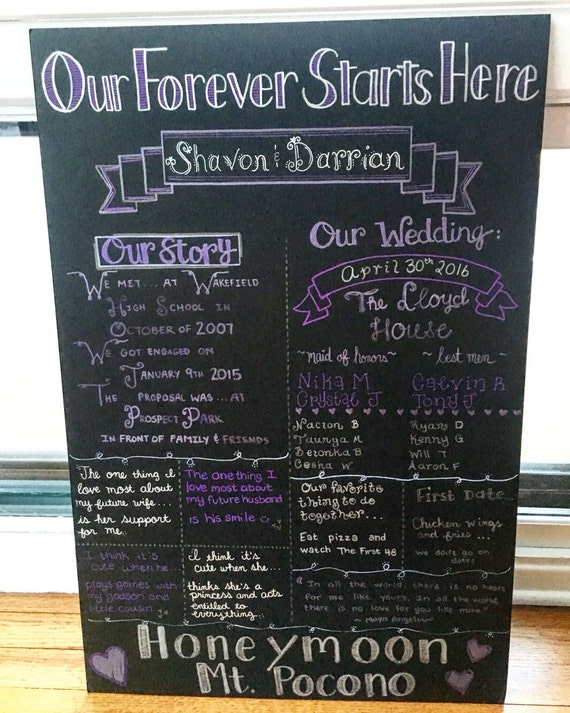 Our Forever Starts Here
Shavon & Darrian
Our Story
We met... at Wakefield
High School in
October of 2007
We got engaged on
January 9th 2015
The proposal was... at
Prospect Park
in front of family & friends
Our Wedding:
April 30th 2016
The Lloyd
House
~maid of honors~
Nika M
Crystal J
Nacion B
Taunya M
Deronka B
Cosha W
~best men~
Calvin R
Tony J
Ryan D
Kenny G
Will T
Aaron F
The one thing I
love most about
my future wife...
is her support
for me..
The one thing I
love most about
my future husband
is his smile
I think it's
cute when he...
plays games with
my godson and
little cousin.
I think it's
cute when she...
thinks she's a
princess and acts
entitled to
everything
Our favorite
thing to do
together...
Eat pizza and
watch The First 48
First Date
Chicken wings
and fries ...
we don't go on
dates
"In all the world, there is no heart
for me like yours. In all the world,
there is no love for you like mine."
~ Maya Angelou
Honeymoon
Mt. Pocono